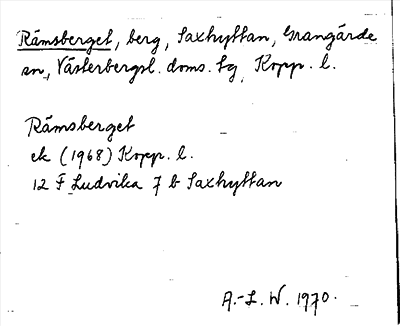 Rämsberget, berg, Saxhyttan, Grangärde
sn, Västerbergsl. doms. tg, Kopp. l.
Rämsberget
ek (1968) Kopp. l.
12 F Ludvika 7 b Saxhyttan
A.-L. W. 1970.